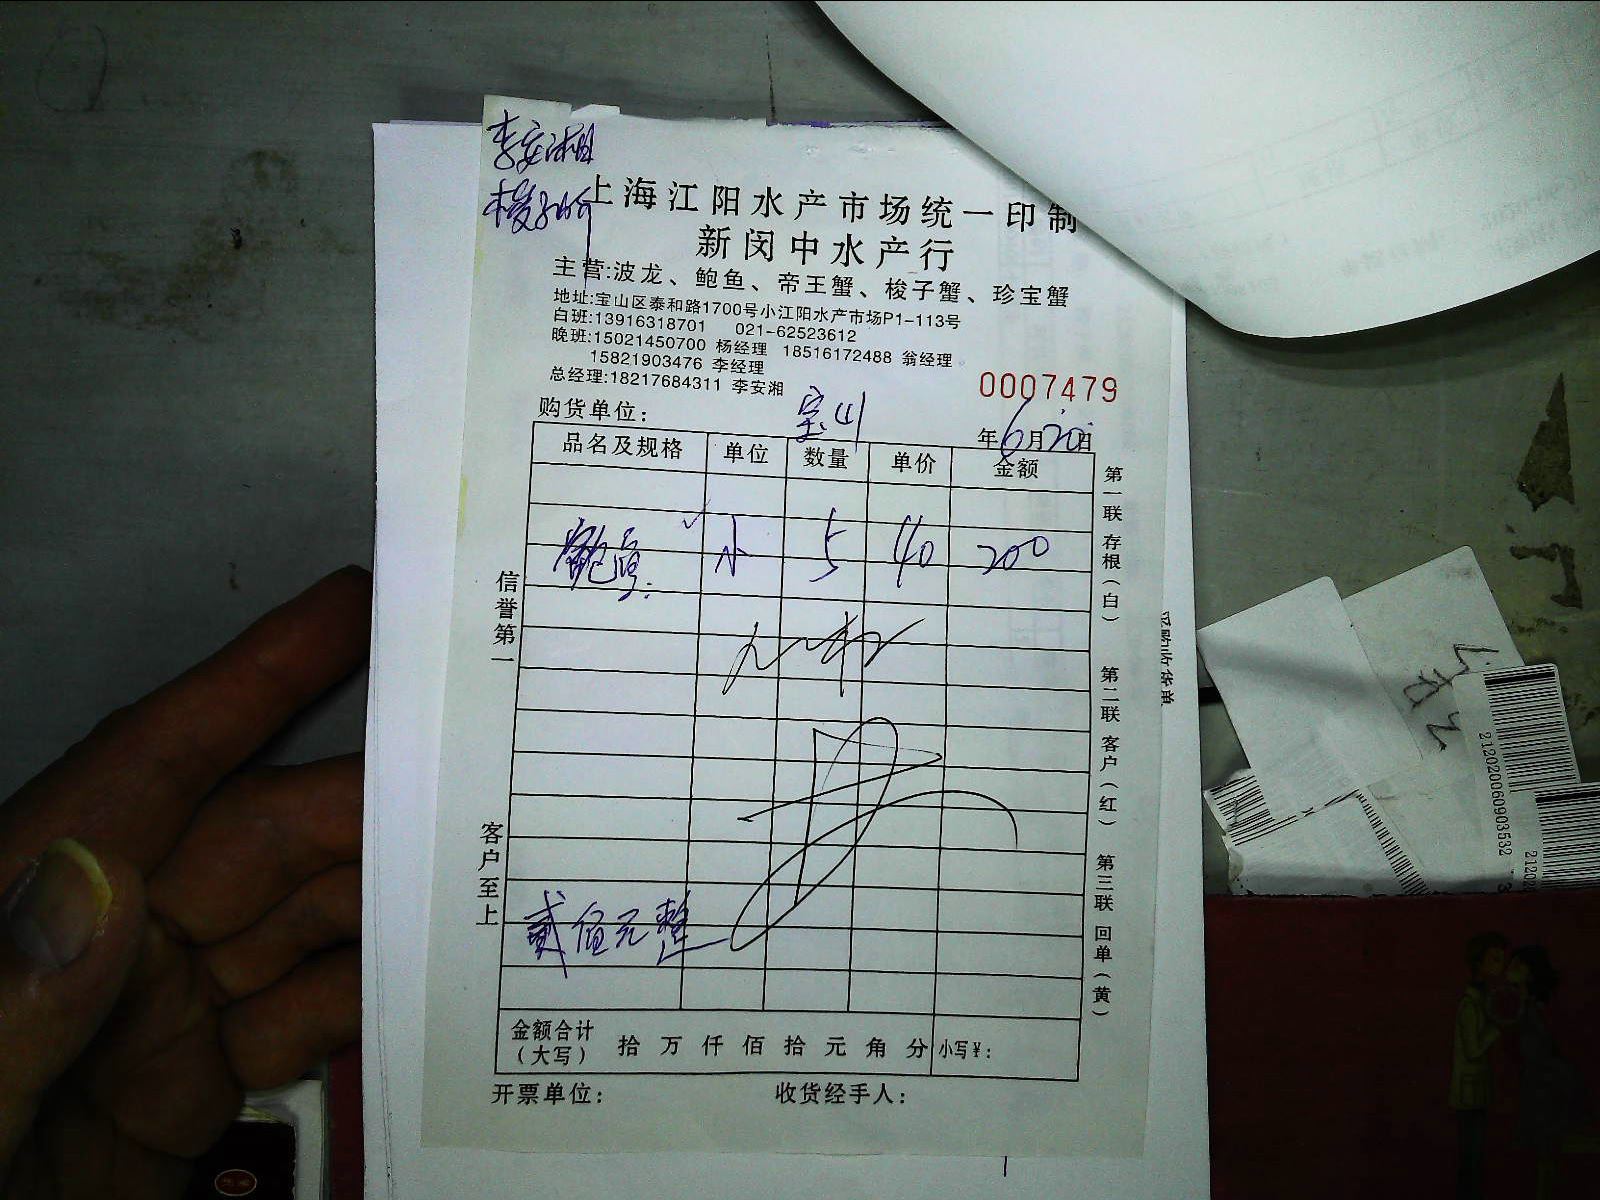 李安湘
梭子蟹
上海江阳水产市场统一印制
新闵中水产行
主营:波龙、鲍鱼、帝王蟹、梭子蟹、珍宝蟹
地址:宝山区泰和路1700号小江阳水产市场P1-113号
白班:13916318701 021-62523612
晚班:15021450700 杨经理 18516172488 翁经理
15821903476 李经理
总经理:18217684311 李安湘
0007479
购货单位: 宝山
年6月20日
品名及规格 单位 数量 单价 金额
鲍鱼 小 5 40 200
贰佰元整
金额合计(大写) 拾万仟佰拾元角分 小写¥:
开票单位: 收货经手人:
信誉第一
客户至上
第一联存根(白)
第二联客户(红)
第三联回单(黄)
21202060903532